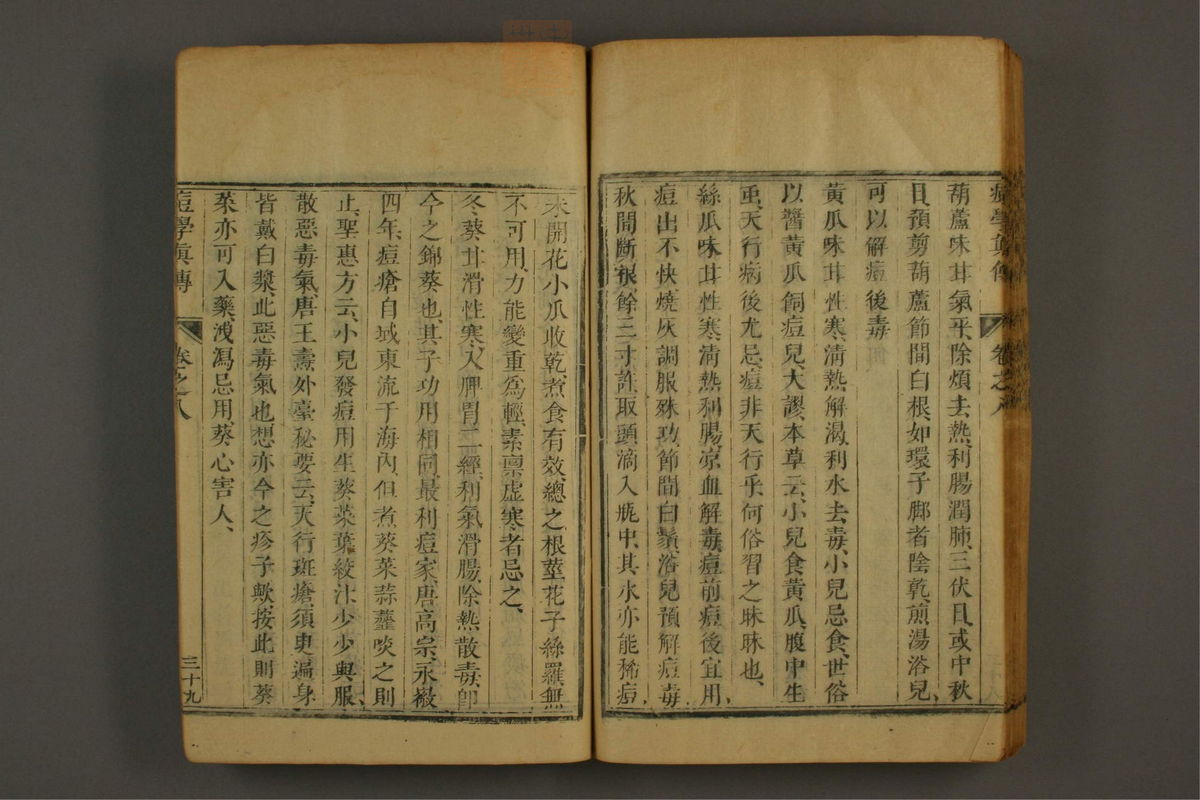 痘學真傳 卷之八
葫蘆味甘氣平、除煩去熱、利腸潤肺、三伏日、或中秋
日、預剪葫蘆節間白根、如環子脚者陰乾、煎湯浴兒、
可以解痘後毒
黃瓜味甘性寒、淸熱解渴、利水去毒、小兒忌食、世俗
以醬黃瓜飼痘兒、大謬、本草云、小兒食黃瓜、腹中生
虫、天行病後尤忌、痘非天行乎、何俗習之昧昧也、
絲瓜味甘性寒、淸熱利腸、凉血解毒、痘前痘後宜用、
痘出不快燒灰調服殊功、節間白鬚、浴兒預解痘毒
秋間斷根、餘三寸許、取頭滴入瓶中、其水亦能稀痘、
未開花小瓜收乾煮食有效、總之、根莖花子絲羅無
不可用、力能變重爲輕、素禀虛寒者忌之、
冬葵甘滑性寒、入脾胃二經、利氣滑腸、除熱散毒、卽
今之錦葵也、其子功用相同、最利痘家、唐高宗、永徽
四年、痘瘡自域東流于海內、但煮葵菜蒜虀啖之則
止、聖惠方云、小兒發痘用生葵菜葉絞汁少少與服、
散惡毒氣、唐王燾外臺秘要云、天行斑瘡、須臾遍身
皆戴白漿、此惡毒氣也、想亦今之疹子歟、按此則葵
菜亦可入藥、洩瀉忌用、葵心害人、
痘學真傳 卷之八 三十九